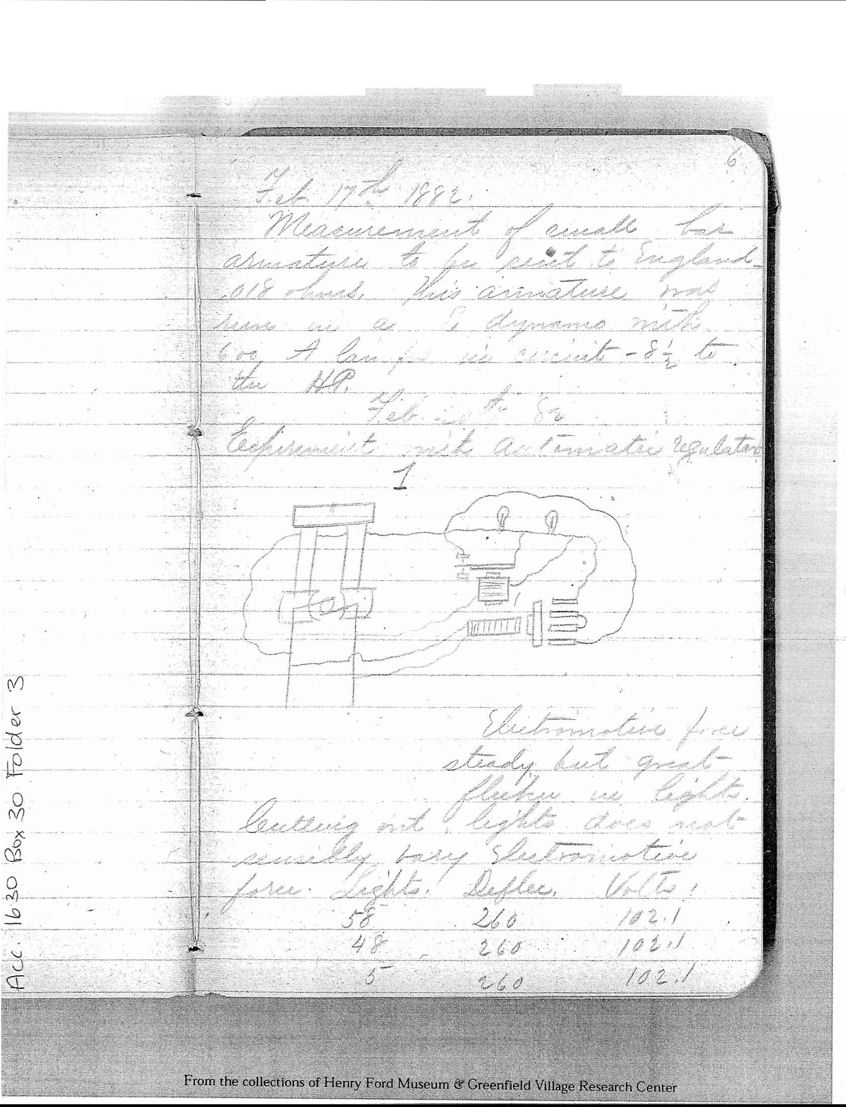 6
Feb. 17th 1882.
Measurement of small bar
armature to be sent to England -
.018 ohms. This armature was
run in a dynamo with
600 A lamps in circuit - 8½ to
the HP.
Feb. th 82
Experiment with automatic regulator
1
Electromotive force
steady but great
flicker in light.
Cutting out lights does not
sensibly vary Electromotive
force. Lights. Deflec. Volts.
58 260 102.1
48 260 102.1
5 260 102.1
Acc. 1630 Box 30 Folder 3
From the collections of Henry Ford Museum & Greenfield Village Research Center